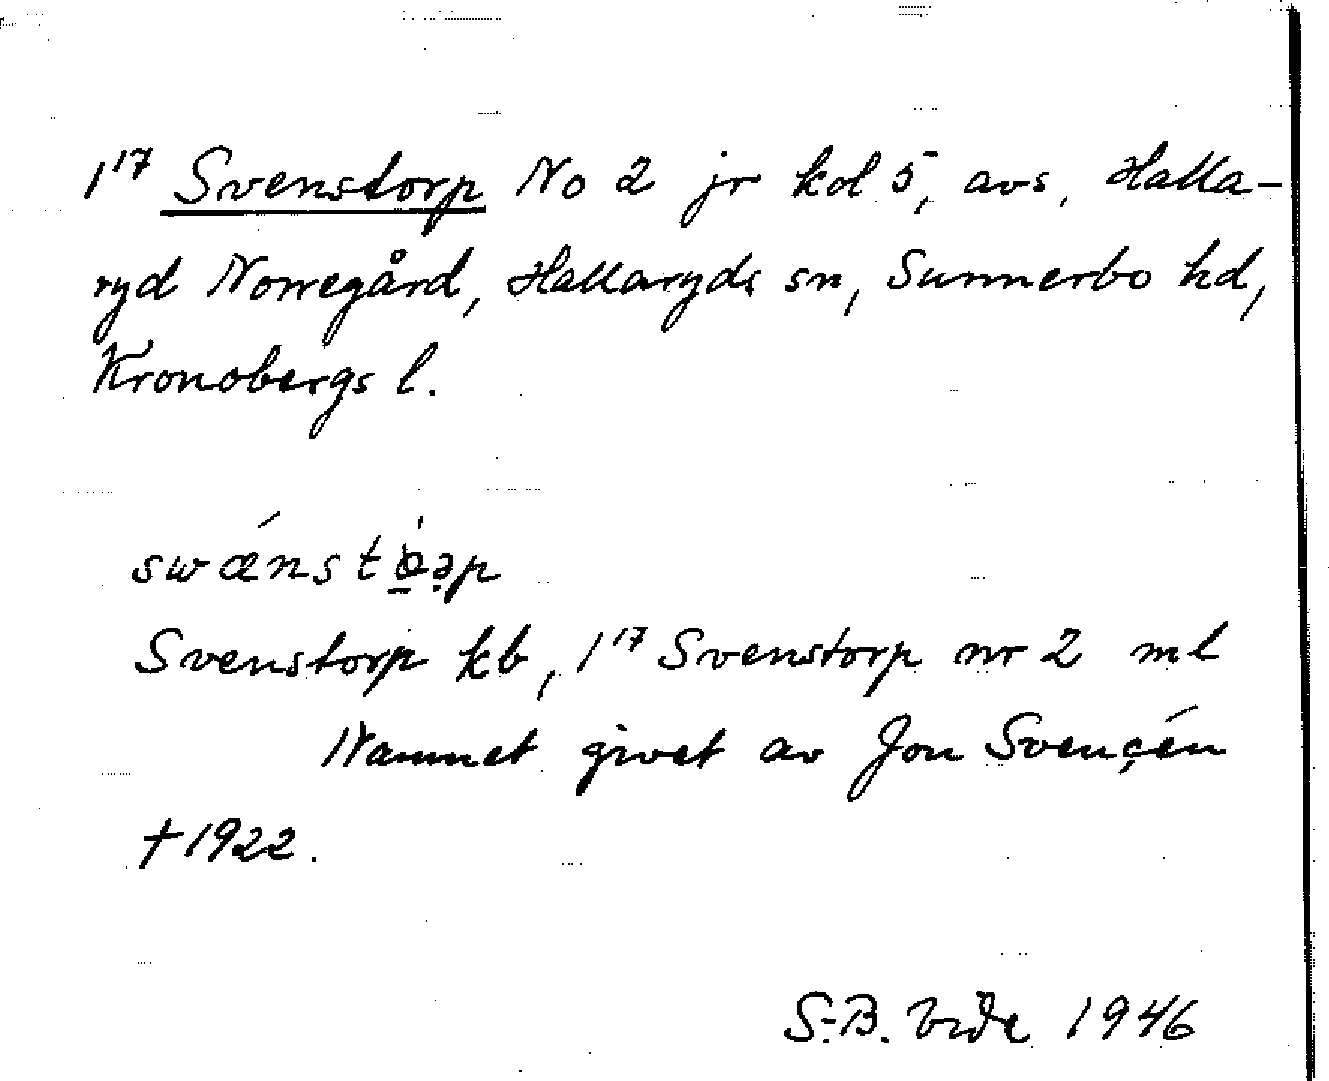 1¹⁷ Svenstorp No 2 jr kol 5, avs, Halla-
ryd Norregård, Hallaryds sn, Sunnerbo hd,
Kronobergs l.
Svenstorp kb, 1¹⁷ Svenstorp nr 2 ml
Namnet givet av Jon Svencén
† 1922.
S.-B. Vide 1946